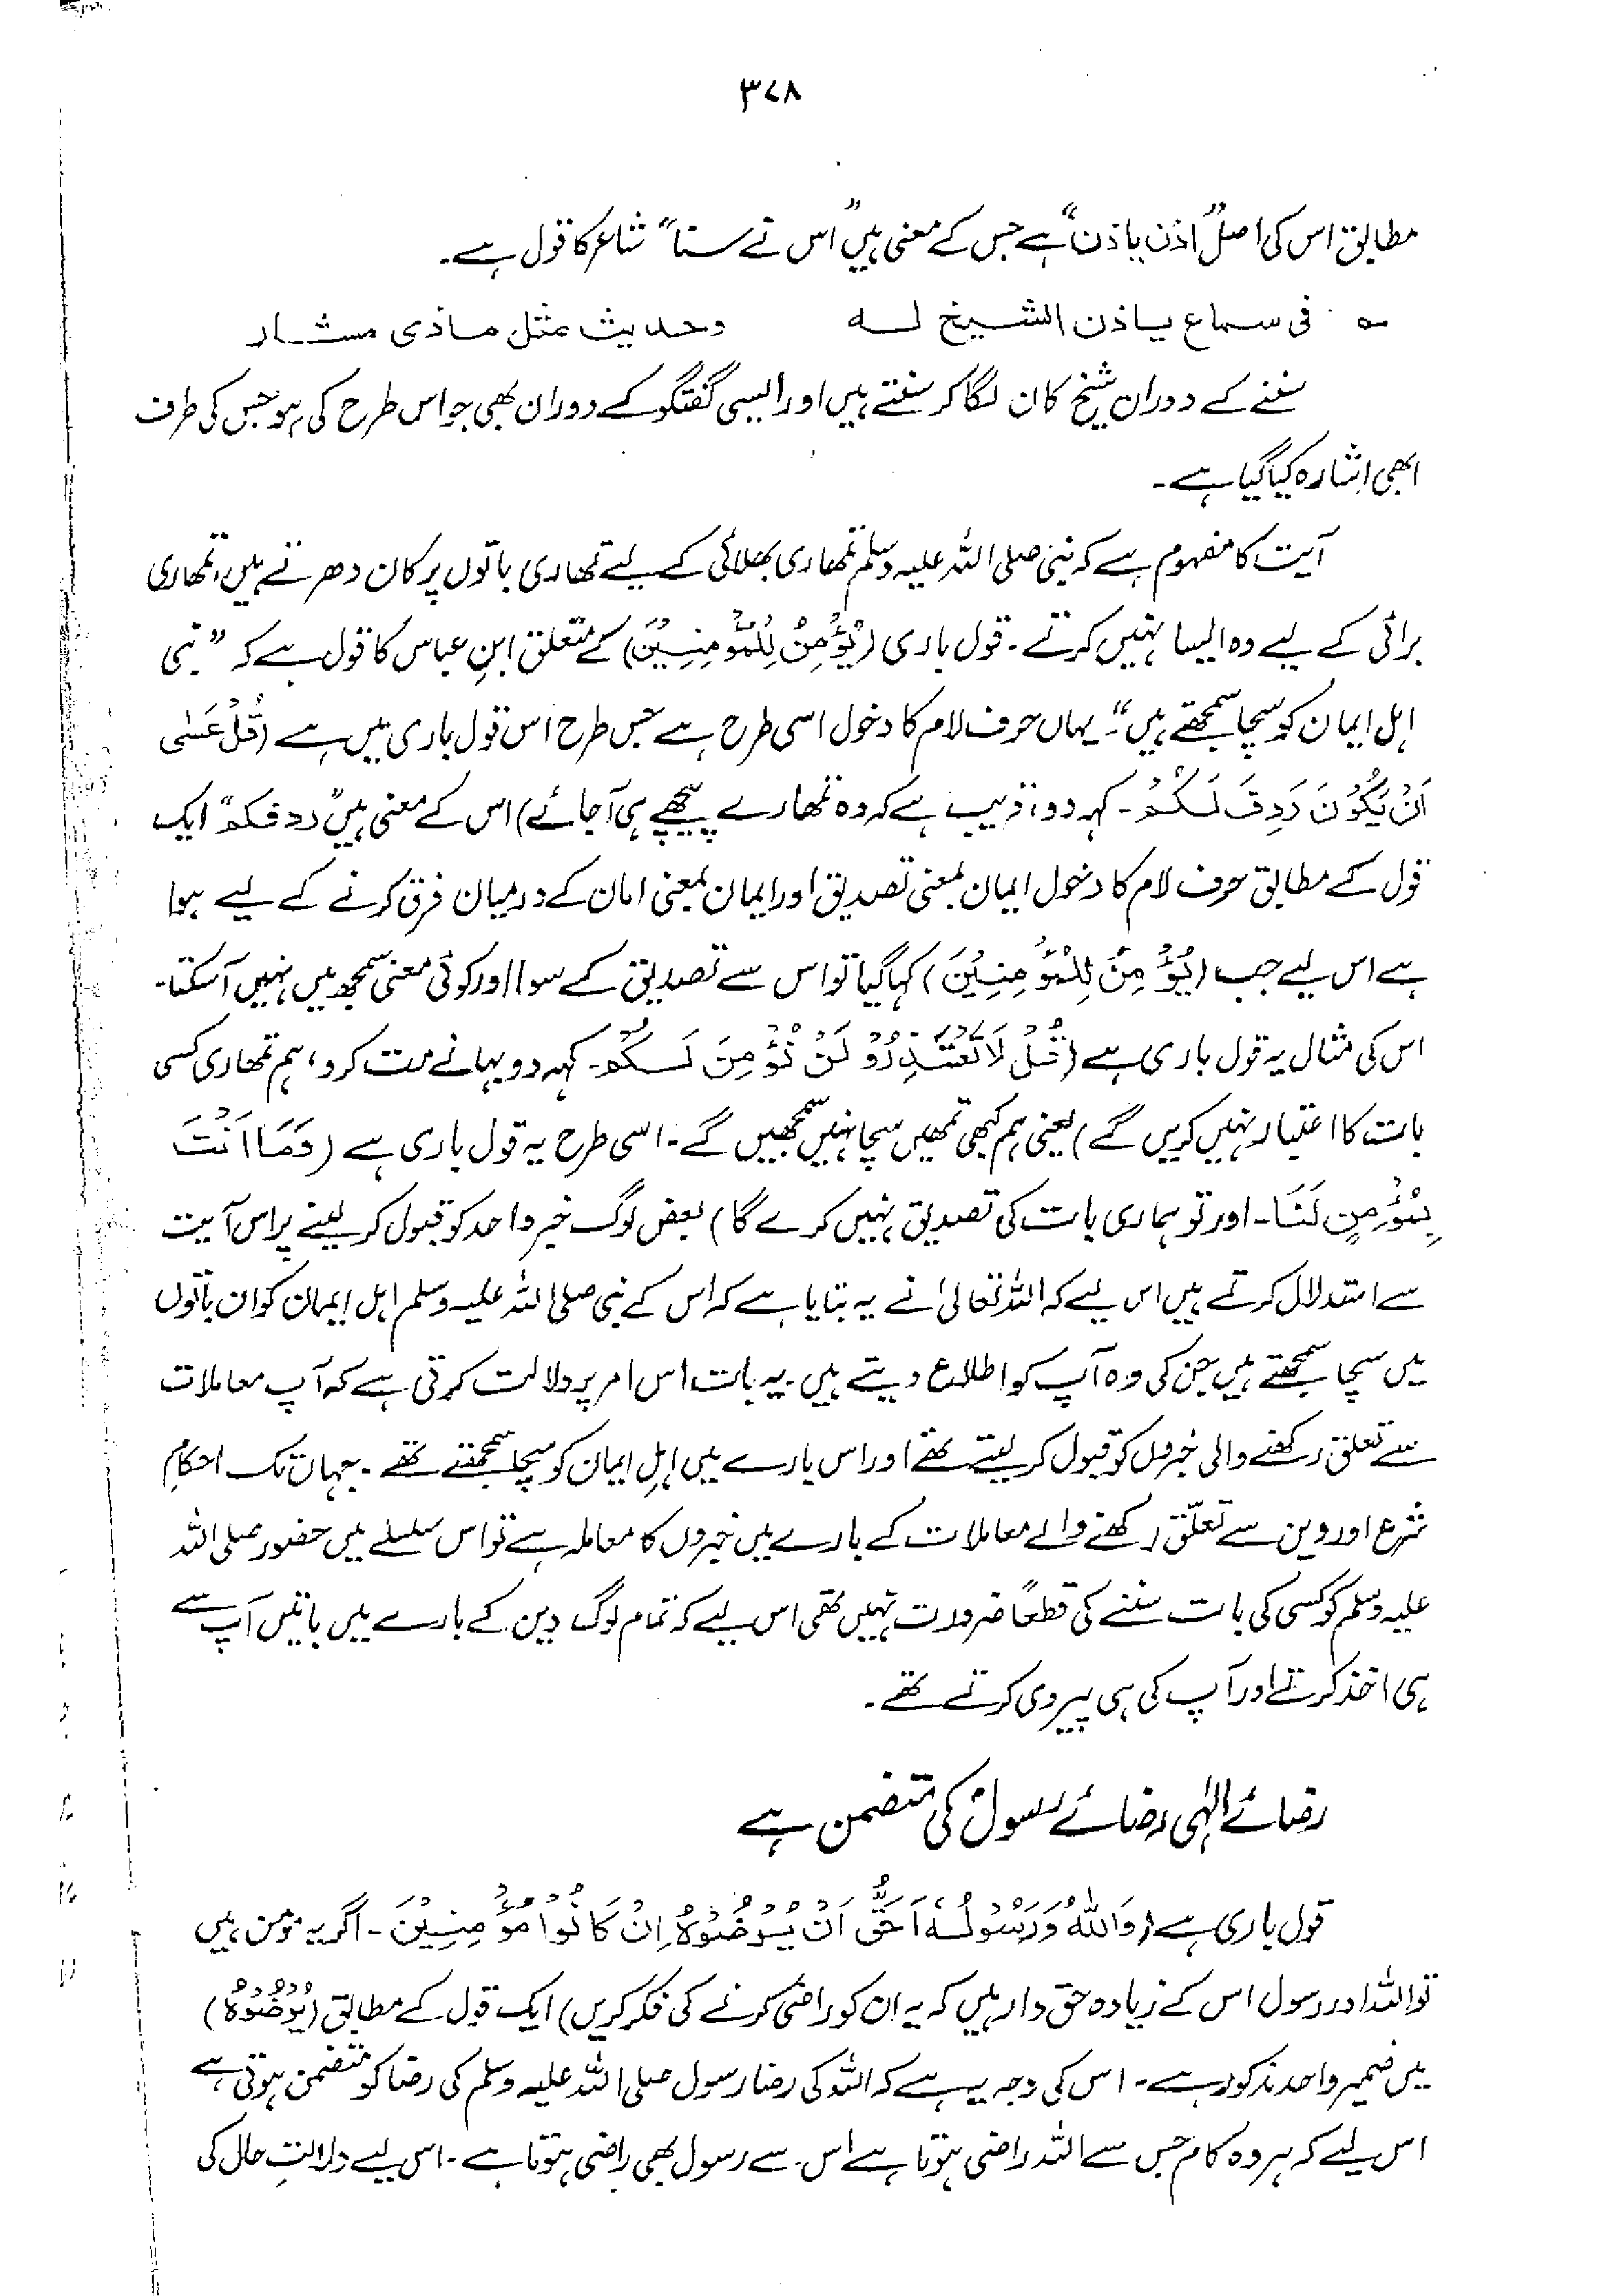 ۳۷۸
مطابق اس کی اصل "اذن یاذن" ہے جس کے معنی ہیں "اس نے سنا" شاعر کا قول ہے۔
؎ فی سماع یاذن الشیخ لہ وحدیث مثل ماذی مشار
سننے کے دوران شیخ کان لگا کر سنتے ہیں اور ایسی گفتگو کے دوران بھی جو اس طرح کی ہو جس کی طرف
ابھی اشارہ کیا گیا ہے۔
آیت کا مفہوم ہے کہ نبی صلی اللہ علیہ وسلم تمھاری بھلائی کے لیے تمھاری باتوں پر کان دھرتے ہیں، تمھاری
برائی کے لیے وہ ایسا نہیں کرتے۔ قول باری (یُؤْمِنُ لِلْمُؤْمِنِیْنَ) کے متعلق ابنِ عباس کا قول ہے کہ "نبی
اہل ایمان کو سچا سمجھتے ہیں"۔ یہاں حرف لام کا دخول اسی طرح ہے جس طرح اس قول باری میں ہے (قُلْ عَسٰی
اَنْ یَّکُوْنَ رَدِفَ لَکُمْ۔ کہہ دو، قریب ہے کہ وہ تمھارے پیچھے ہی آجائے) اس کے معنی ہیں "ردفکم" ایک
قول کے مطابق حرف لام کا دخول ایمان بمعنی تصدیق اور ایمان بمعنی امان کے درمیان فرق کرنے کے لیے ہوا
ہے اس لیے جب (یُؤْمِنُ لِلْمُؤْمِنِیْنَ) کہا گیا تو اس سے تصدیق کے سوا اور کوئی معنی سمجھ میں نہیں آسکتا۔
اس کی مثال یہ قول باری ہے (قُلْ لَا تَعْتَذِرُوْا لَنْ نُّؤْمِنَ لَکُمْ۔ کہہ دو بہانے مت کرو، ہم تمھاری کسی
بات کا اعتبار نہیں کریں گے) یعنی ہم کبھی تمھیں سچا نہیں سمجھیں گے۔ اسی طرح یہ قول باری ہے (وَمَا اَنْتَ
بِمُؤْمِنٍ لَّنَا۔ اور تو ہماری بات کی تصدیق نہیں کرے گا) بعض لوگ خبر واحد کو قبول کر لینے پر اس آیت
سے استدلال کرتے ہیں اس لیے کہ اللہ تعالیٰ نے یہ بتایا ہے کہ اس کے نبی صلی اللہ علیہ وسلم اہل ایمان کو ان باتوں
میں سچا سمجھتے ہیں جن کی وہ آپ کو اطلاع دیتے ہیں۔ یہ بات اس امر پر دلالت کرتی ہے کہ آپ معاملات
سے تعلق رکھنے والی خبروں کو قبول کر لیتے تھے اور اس بارے میں اہلِ ایمان کو سچا سمجھتے تھے۔ جہاں تک احکامِ
شرع اور دین سے تعلّق رکھنے والے معاملات کے بارے میں خبروں کا معاملہ ہے تو اس سلسلے میں حضور صلی اللہ
علیہ وسلم کو کسی کی بات سننے کی قطعاً ضرورت نہیں تھی اس لیے کہ تمام لوگ دین کے بارے میں باتیں آپ سے
ہی اخذ کرتے اور آپ کی ہی پیروی کرتے تھے۔
رضائے الٰہی رضائے رسولؐ کی متضمن ہے
قول باری ہے (وَاللّٰهُ وَرَسُوْلُـهٗ اَحَقُّ اَنْ یُّرْضُوْهُ اِنْ کَانُوْا مُؤْمِنِیْنَ۔ اگر یہ مؤمن ہیں
تو اللہ اور رسول اس کے زیادہ حق دار ہیں کہ یہ ان کو راضی کرنے کی فکر کریں) ایک قول کے مطابق (یُرْضُوْهُ)
میں ضمیر واحد مذکور ہے۔ اس کی وجہ یہ ہے کہ اللہ کی رضا رسول صلی اللہ علیہ وسلم کی رضا کو متضمن ہوتی ہے
اس لیے کہ ہر وہ کام جس سے اللہ راضی ہوتا ہے اس سے رسول بھی راضی ہوتا ہے۔ اس لیے دلالتِ حال کی